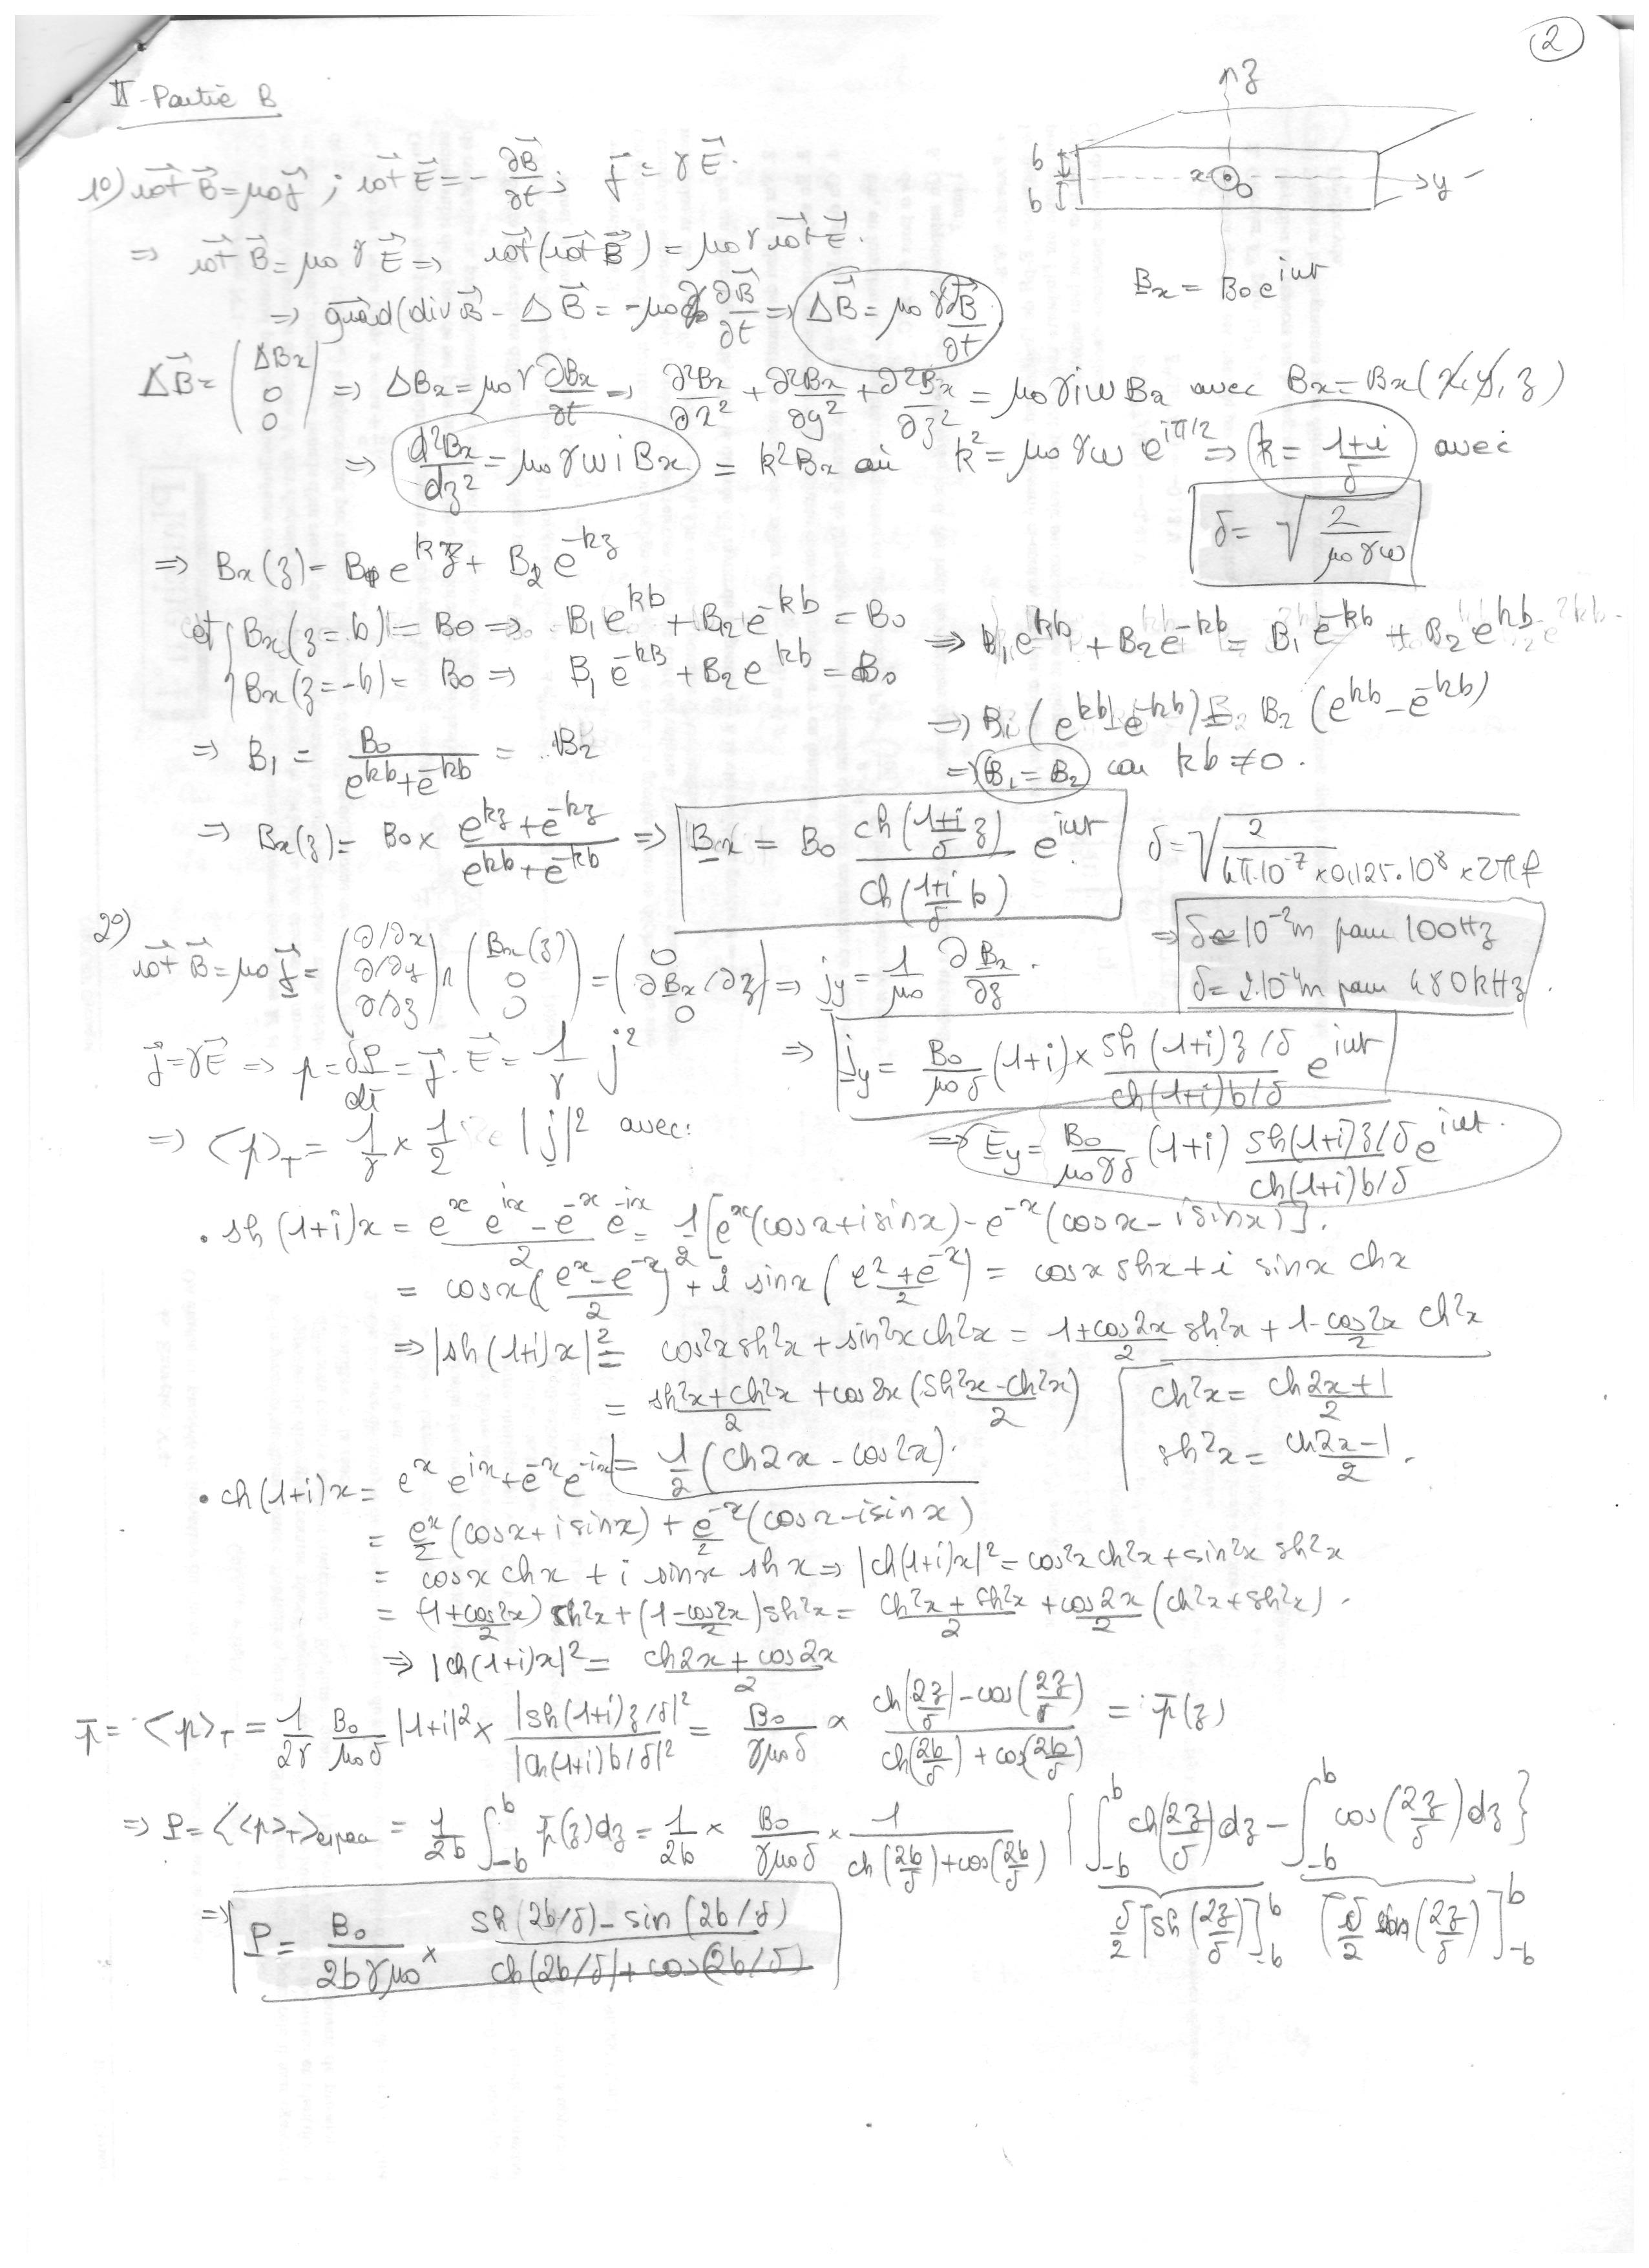 (2)
II - Partie B
z
b
b
x
O
y
1°) rot B = μ0 j ; rot E = - ∂B/∂t ; j = γ E.
⇒ rot B = μ0 γ E ⇒ rot(rot B) = μ0 γ rot E.
Bx = B0 e^iωt
⇒ grad(div B - ΔB = -μ0 γ ∂B/∂t ⇒ ΔB = μ0 γ ∂B/∂t
ΔB = (ΔBx 0 0) ⇒ ΔBx = μ0 γ ∂Bx/∂t ⇒ ∂²Bx/∂x² + ∂²Bx/∂y² + ∂²Bx/∂z² = μ0 γ i ω Bx avec Bx = Bx(x, y, z)
⇒ d²Bx/dz² = μ0 γ ω i Bx = k² Bx où k² = μ0 γ ω e^iπ/2 ⇒ k = (1+i)/δ avec
δ = √(2/μ0 γ ω)
⇒ Bx(z) = B1 e^kz + B2 e^-kz
et { Bx(z = b) = B0 ⇒ B1 e^kb + B2 e^-kb = B0 ⇒ B1 e^kb + B2 e^-kb = B1 e^-kb + B2 e^kb
Bx(z = -b) = B0 ⇒ B1 e^-kB + B2 e^kb = B0
⇒ B1 (e^kb - e^-kb) = B2 (e^kb - e^-kb)
⇒ B1 = B0/(e^kb + e^-kb) = B2
⇒ B1 = B2 car kb ≠ 0.
⇒ Bx(z) = B0 × (e^kz + e^-kz)/(e^kb + e^-kb) ⇒ Bx = B0 ch((1+i)/δ z)/ch((1+i)/δ b) e^iωt
δ = √(2/(4π.10^-7 × 0,125.10^8 × 2πf))
⇒ δ ≃ 10^-2 m pour 100 Hz
δ = 2.10^-4 m pour 480 kHz.
2°)
rot B = μ0 j = (∂/∂x ∂/∂y ∂/∂z) ∧ (Bx(z) 0 0) = (0 ∂Bx/∂z 0) ⇒ jy = 1/μ0 ∂Bx/∂z.
⇒ jy = B0/(μ0 δ) (1+i) × sh(1+i)z/δ / ch(1+i)b/δ e^iωt
j = γE ⇒ p = δP/dτ = j.E = 1/γ j²
⇒ <p>T = 1/γ × 1/2 |j|² avec:
⇒ Ey = B0/(μ0 γ δ) (1+i) sh(1+i)z/δ / ch(1+i)b/δ e^iωt.
. sh(1+i)x = (e^x e^ix - e^-x e^-ix)/2 = 1/2 [e^x(cos x + i sin x) - e^-x(cos x - i sin x)].
= cos x ((e^x - e^-x)/2) + i sin x ((e^x + e^-x)/2) = cos x sh x + i sin x ch x
⇒ |sh(1+i)x|² = cos²x sh²x + sin²x ch²x = (1+cos2x)/2 sh²x + (1-cos2x)/2 ch²x
= (sh²x + ch²x)/2 + cos2x (sh²x - ch²x)/2
ch²x = (ch2x + 1)/2
sh²x = (ch2x - 1)/2.
= 1/2 (ch2x - cos2x).
. ch(1+i)x = e^x e^ix + e^-x e^-ix
= e^x/2 (cos x + i sin x) + e^-x/2 (cos x - i sin x)
= cos x ch x + i sin x sh x ⇒ |ch(1+i)x|² = cos²x ch²x + sin²x sh²x
= ((1+cos2x)/2) sh²x + ((1-cos2x)/2) sh²x = (ch²x + sh²x)/2 + cos2x/2 (ch²x + sh²x).
⇒ |ch(1+i)x|² = (ch2x + cos2x)/2
p = <p>T = 1/2γ B0/(μ0 δ) |1+i|² × |sh(1+i)z/δ|²/|ch(1+i)b/δ|² = B0/(γ μ0 δ) × (ch(2z/δ) - cos(2z/δ))/(ch(2b/δ) + cos(2b/δ)) = p(z)
⇒ P = <<p>T>espace = 1/2b ∫_-b^b p(z)dz = 1/2b × B0/(γ μ0 δ) × 1/(ch(2b/δ) + cos(2b/δ)) { ∫_-b^b ch(2z/δ)dz - ∫_-b^b cos(2z/δ)dz }
δ/2 [sh(2z/δ)]_-b^b [δ/2 sin(2z/δ)]_-b^b
⇒ P = B0/(2bγμ0) × (sh(2b/δ) - sin(2b/δ))/(ch(2b/δ) + cos(2b/δ))